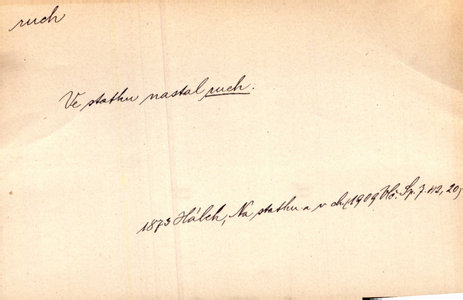 ruch
Ve statku nastal ruch.
1873 Hálek, Na statku a v ch. (1909 Sp. 7. 112, 20)